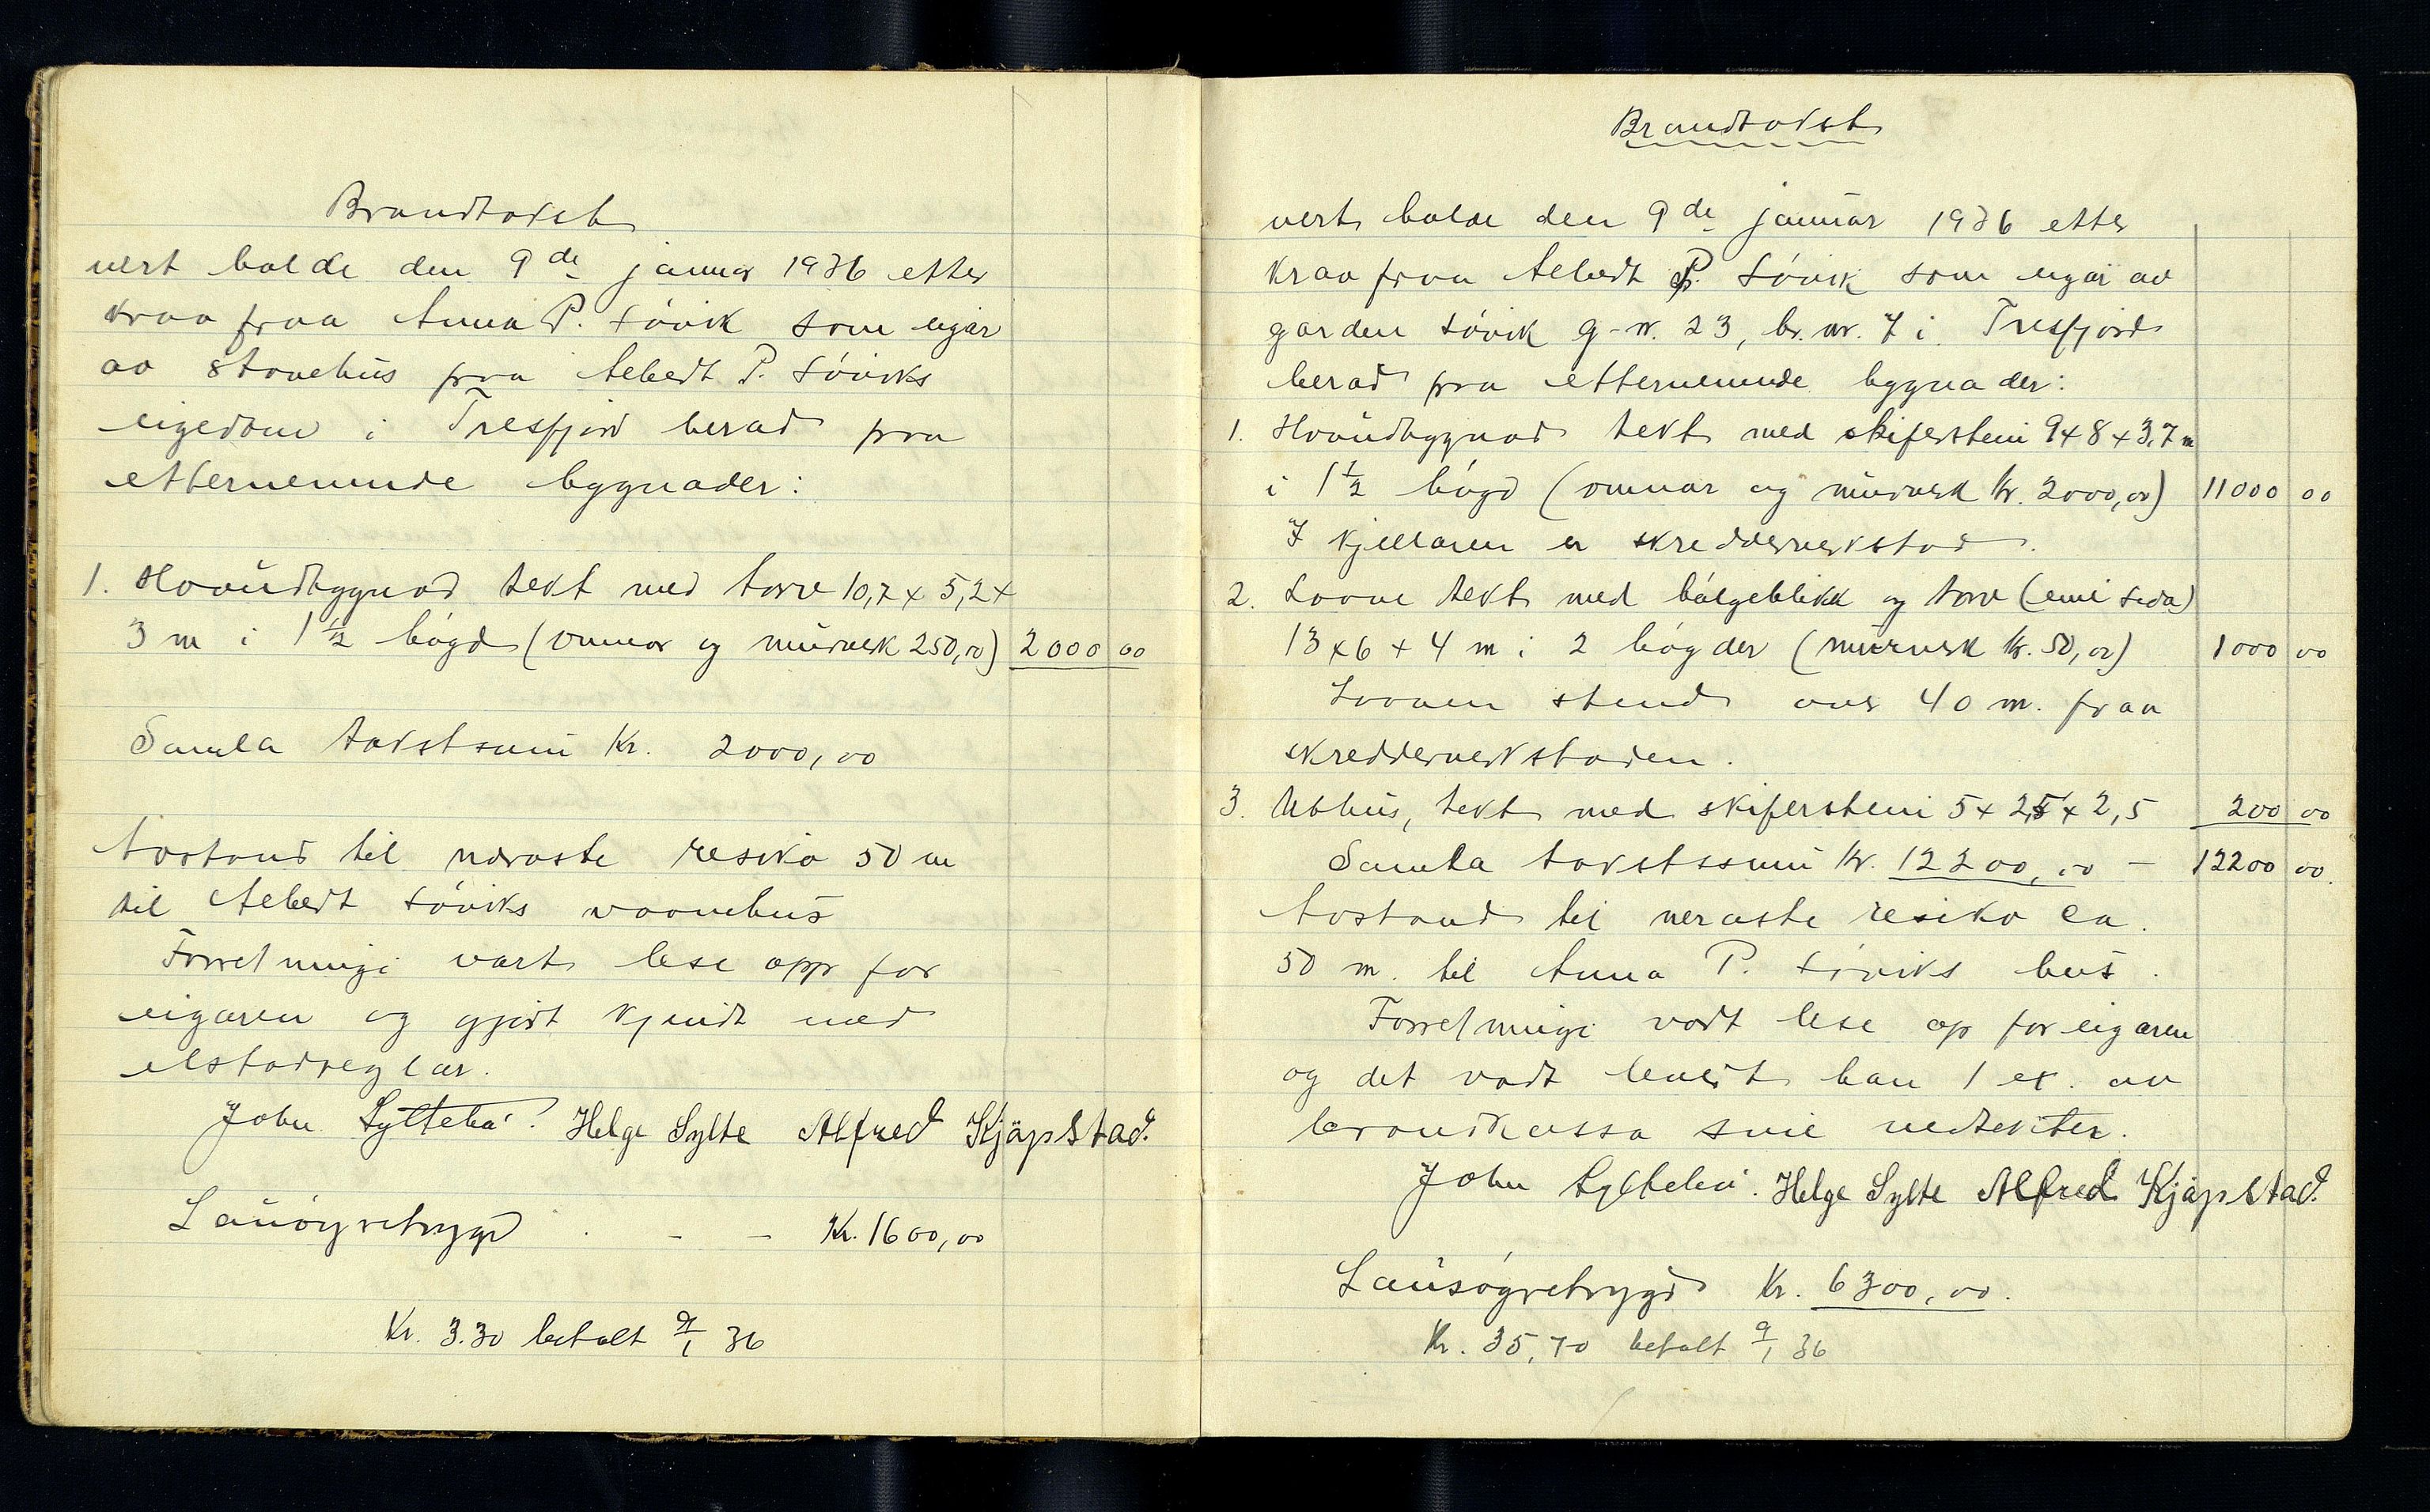 Brandtakst
vert halde den 9de januar 1936 etter
krav fraa Anna P. Søvik som eigar
av stovehus fraa Albert P. Søviks
eigedom i Tresfjord herad fraa
etternemnde bygnader:
1. Hovudbygnad tekt med torv 10,7 x 5,2 x
3 m i 1 1/2 høgd (omnar og murverk 250,00) 2000 00
Samla takstsum Kr. 2000,00
Avstand til næraste resiko 50 m
til Albert Søviks vaanehus
Forretningi vart lese opp for
eigaren og gjort kjendt med
elstadreglar.
John Sylteba. Helge Sylte Alfred Kjäpstad.
Lausøyretrygd . - - Kr. 1600,00
Kr. 3.30 betalt 9/1 36
Brandtakst
vert halde den 9de januar 1936 etter
krav fraa Albert P. Søvik som eigar av
garden Søvik g-nr. 23, br. nr. 7 i Tresfjord
herad fraa etternemnde bygnader:
1. Hovudbygnad tekt med skiferstein 9 x 8 x 3,7 m
i 1 1/2 høgd (omnar og murverk kr. 2000,00) 11000 00
I kjellaren er skreddarverkstad.
2. Loove tekt med bølgeblikk og torv (eini sida)
13 x 6 x 4 m i 2 høgder (murverk kr. 50,00) 1000 00
Looven stend over 40 m. fraa
skreddarverkstaden.
3. Uthus, tekt med skiferstein 5 x 2,5 x 2,5 200 00
Samla takstssum kr. 12200,00 - 12200 00.
Avstand til næraste resiko ca.
50 m. til Anna P. Søviks hus.
Forretningi vart lese op for eigaren
og det vart levert han 1 ex. av
brandkassa sine vedtekter.
John Sylteba. Helge Sylte Alfred Kjäpstad.
Lausøyretrygd Kr. 6300,00.
Kr. 35,70 betalt 9/1 36